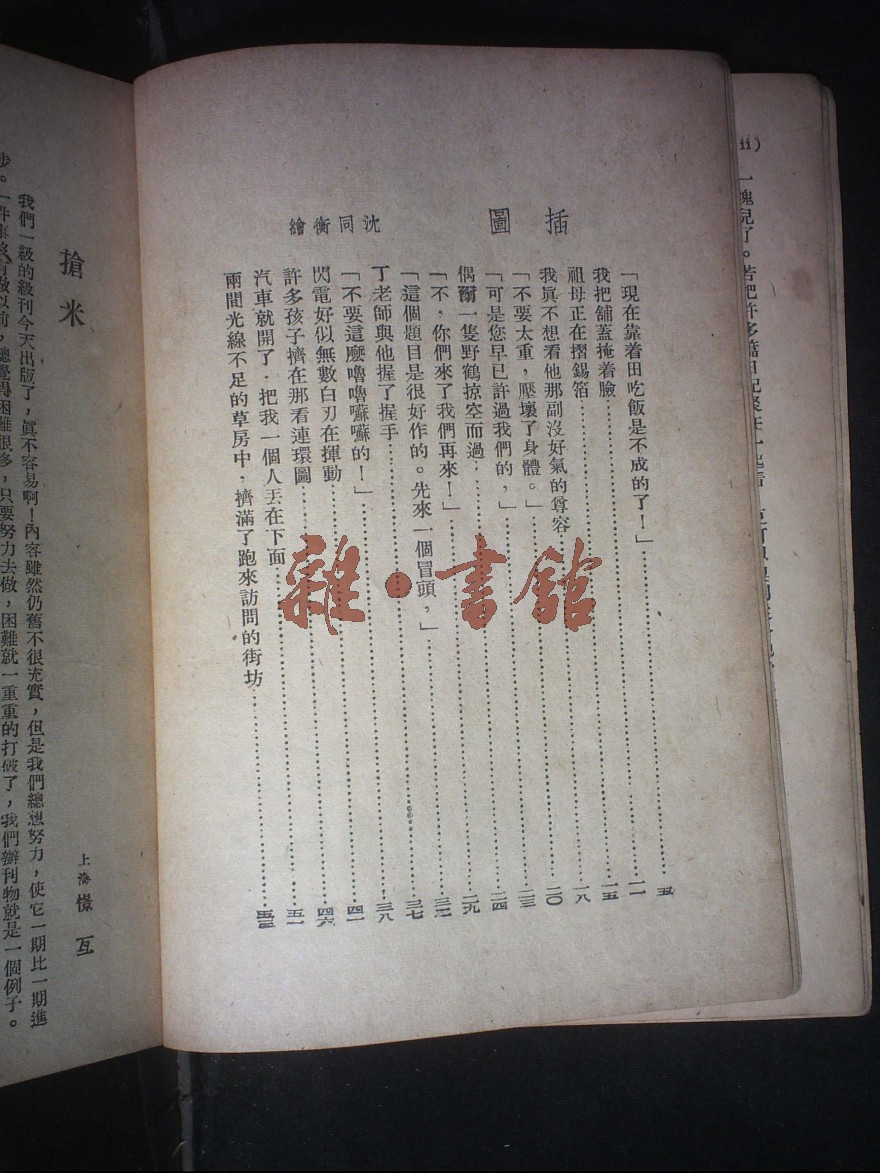 ii)
一塊兒了。若把許多篇日記聚在一起看
插圖
沈同衡繪
「現在靠着田吃飯是不成的了！」……五
我把舖蓋掩着臉……一一
祖母正在摺錫箔……一五
我真不想看他那副沒好氣的尊容……一八
「不要太重，壓壞了身體。」……二〇
「可是您早已許過我們的，」……二三
偶爾一隻野鶴掠空而過……二四
「不，你們來了我們再來！」……二九
「這個題目是很好作的。先來一個冒頭，」……三二
丁老師與他握了握手……三七
「不要這麼嚕嚕囌囌的！」……三八
閃電好似無數白刃在揮動……四一
許多孩子擠在那看連環圖……四六
汽車就開了．把我一個人丟在下面……五一
兩間光線不足的草房中，擠滿了跑來訪問的街坊……五三
雜·書館
搶米
上海 憬互
我們一級的級刊今天出版了，眞不容易啊！內容雖然仍舊不很充實，但是我們總想努力，使它一期比一期進
步。一件事沒有做以前，總覺得困難很多，只要努力去做，困難就一重重的打破了，我們辦刊物就是一個例子。